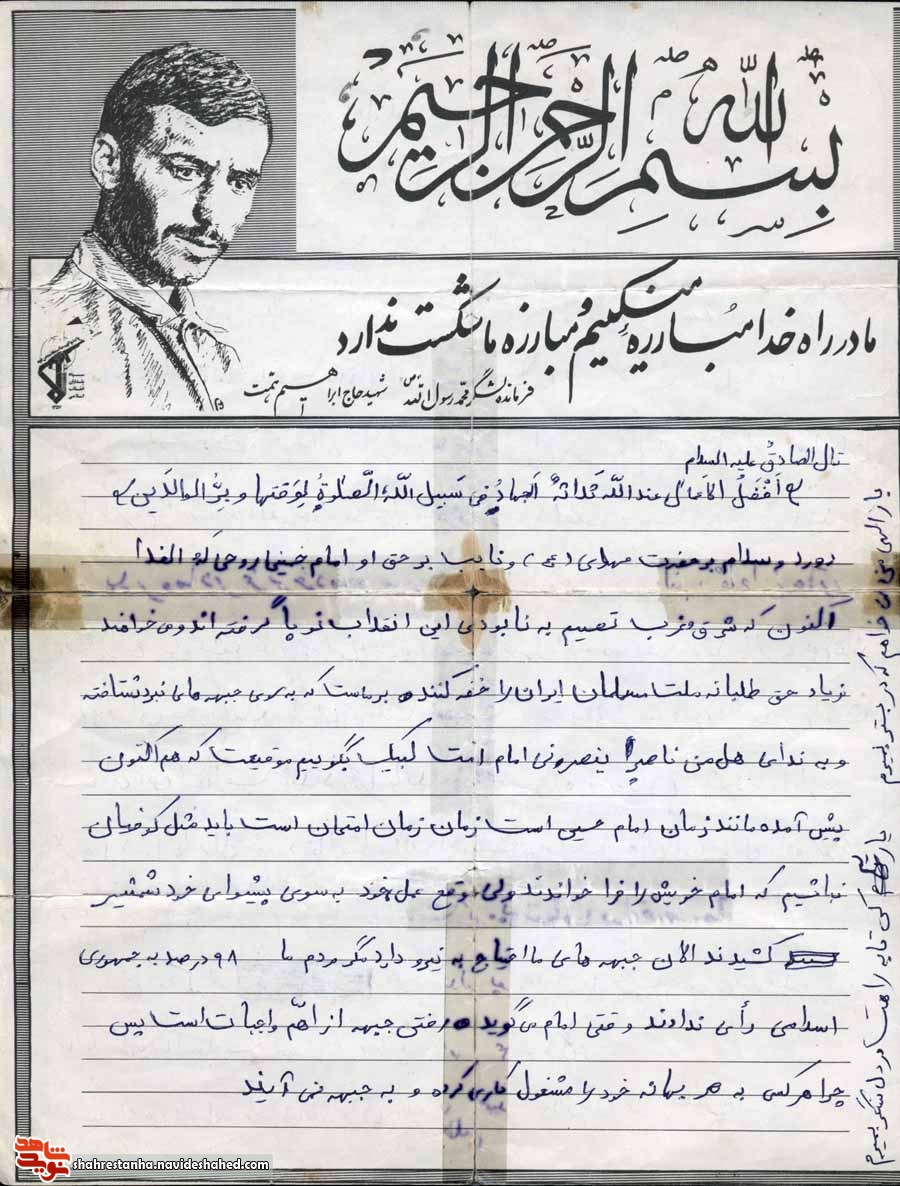 بسم الله الرحمن الرحیم
ما در راه خدا مبارزه میکنیم و مبارزه ما شکست ندارد
فرمانده لشگر محمد رسول الله (ص) شهید حاج ابراهیم همت
قال الصادق علیه السلام
افضل الاعمال عند الله ثلاثة الجهاد فی سبیل الله الصلوة لوقتها و بر الوالدین
درود و سلام بر حضرت مهدی (عج) و نایب بر حق او امام خمینی روحی له الفدا
اکنون که شرق و غرب تصمیم به نابودی این انقلاب نوپا گرفته اند و می خواهند
فریاد حق طلبانه ملت مسلمان ایران را خفه کنند بر ماست که به سوی جبهه های نبرد شتافته
و به ندای هل من ناصرا ینصرونی امام امت لبیک بگوییم موقعیت که هم اکنون
پیش آمده مانند زمان امام حسین است زمان زمان امتحان است باید مثل کوفیان
نباشیم که امام خویش را فرا خواندند ولی موقع عمل خود به سوی پیشوای خود شمشیر
کشیدند الان جبهه های ما احتیاج به نیرو دارد مگر مردم ما ۹۸ درصد به جمهوری
اسلامی رأی ندادند وقتی امام می گوید رفتن جبهه از اهم واجبات است پس
چرا هر کس به هر بهانه خود را مشغول کاری کرده و به جبهه نمی آیند
بار الهی نمی خواهم که در بستر بمیرم
یاری کن تا به راهت در دل سنگر بمیرم
نوید شاهد
shahrestanha.navideshahed.com